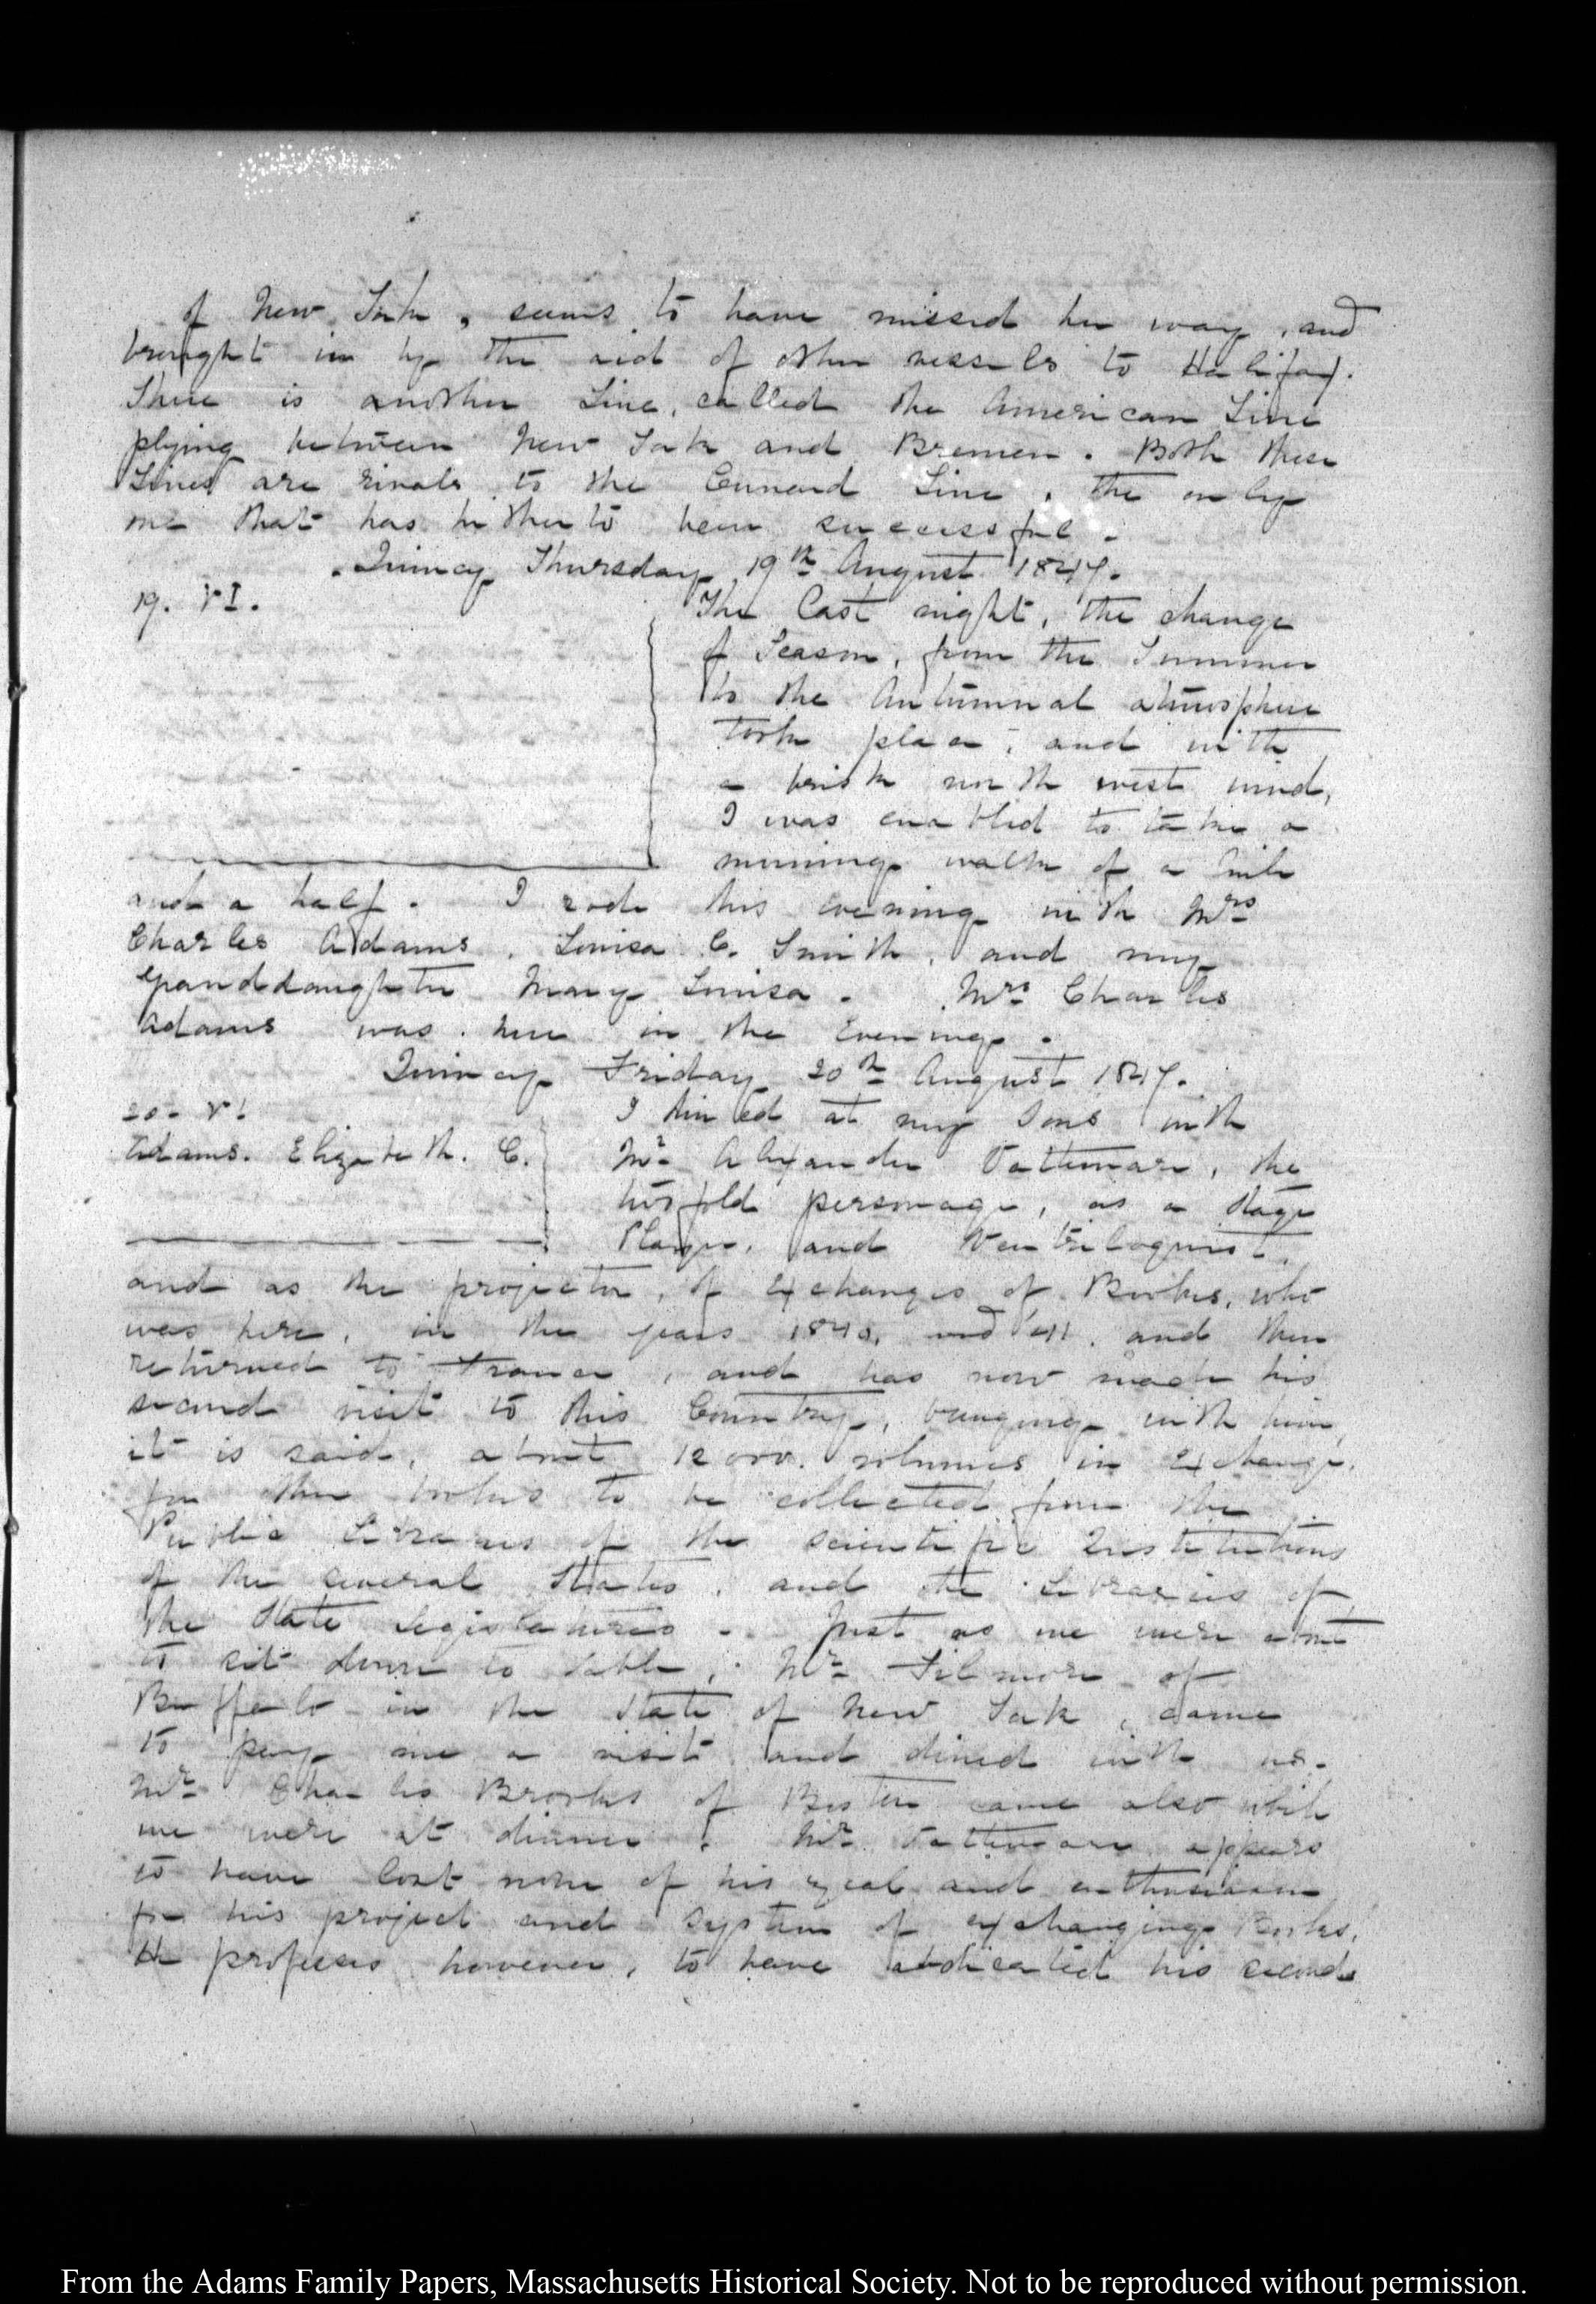 of New York, seems to have missed her way, and
brought in by the aid of other vessels to Halifax.
There is another Line, called the American Line
plying between New York and Bremen. Both these
Lines are rivals to the Cunard Line, the only
one that has hitherto been successful.
Quincy Thursday 19th August 1847.
19. VI.
The last night, the change
of Season, from the Summer
to the Autumnal atmosphere
took place, and with
a brisk north west wind,
I was enabled to take a
morning walk of a mile
and a half. I rode this evening with Mrs
Charles Adams, Louisa C. Smith, and my
Granddaughter Mary Louisa. Mrs Charles
Adams was here in the Evening.
Quincy Friday 20th August 1847.
20. V.
Adams. Elizabeth. C.
I dined at my Sons with
Mr Alexander Vattemare, the
twofold personage, as a Stage
Player, and Ventriloquist,
and as the projector, of Exchanges of Books, who
was here, in the years 1840, and 41. and then
returned to France, and has now made his
second visit to this Country, bringing with him,
it is said, about 12000. volumes in Exchange,
for other books to be collected from the
Public Libraries of the scientific Institutions
of the several States, and the Libraries of
the State Legislatures. Just as we were about
to sit down to table, Mr Filmore of
Buffalo in the State of New York, came
to pay me a visit and dined with us.
Mr Charles Brooks of Boston came also while
we were at dinner. Mr Vattemare appears
to have lost none of his zeal and enthusiasm
for his project and system of exchanging Books.
He professes however, to have abdicated his second
From the Adams Family Papers, Massachusetts Historical Society. Not to be reproduced without permission.